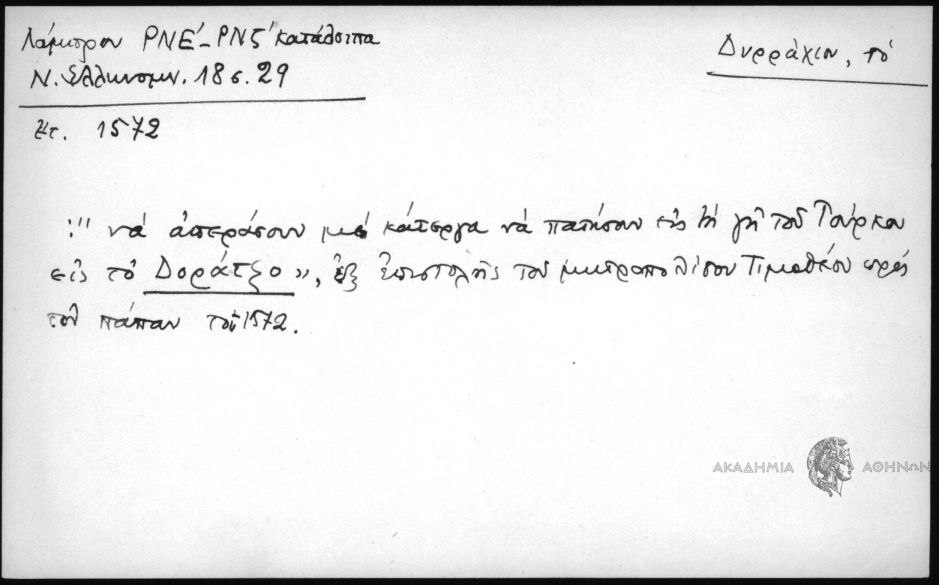 Λάμπρου ΡΝΕ´-ΡΝΖ´ κατάλοιπα
Ν. Ἑλληνομν. 18 σ. 29
Δυρράχιον, τό
Ἔτ. 1572
:" νά ἀπεράσουν μέ κάτεργα νά πατήσουν εἰς τή γῆ τοῦ Τούρκου
εἰς τό Δοράτζο», ἐξ ἐπιστολῆς τοῦ μητροπολίτου Τιμοθέου πρός
τόν πάπαν τοῦ 1572.
ΑΚΑΔΗΜΙΑ ΑΘΗΝΩΝ